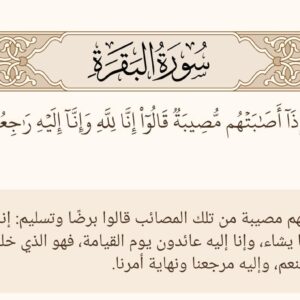 سُورَةُ البَقَرَةِ
أَصَٰبَتْهُم مُّصِيبَةٌ قَالُوٓا۟ إِنَّا لِلَّهِ وَإِنَّآ إِلَيْهِ
مصيبة من تلك المصائب قالوا برضًا وتسليم:
يشاء، وإنا إليه عائدون يوم القيامة، فهو الذي
وإليه مرجعنا ونهاية أمرنا.